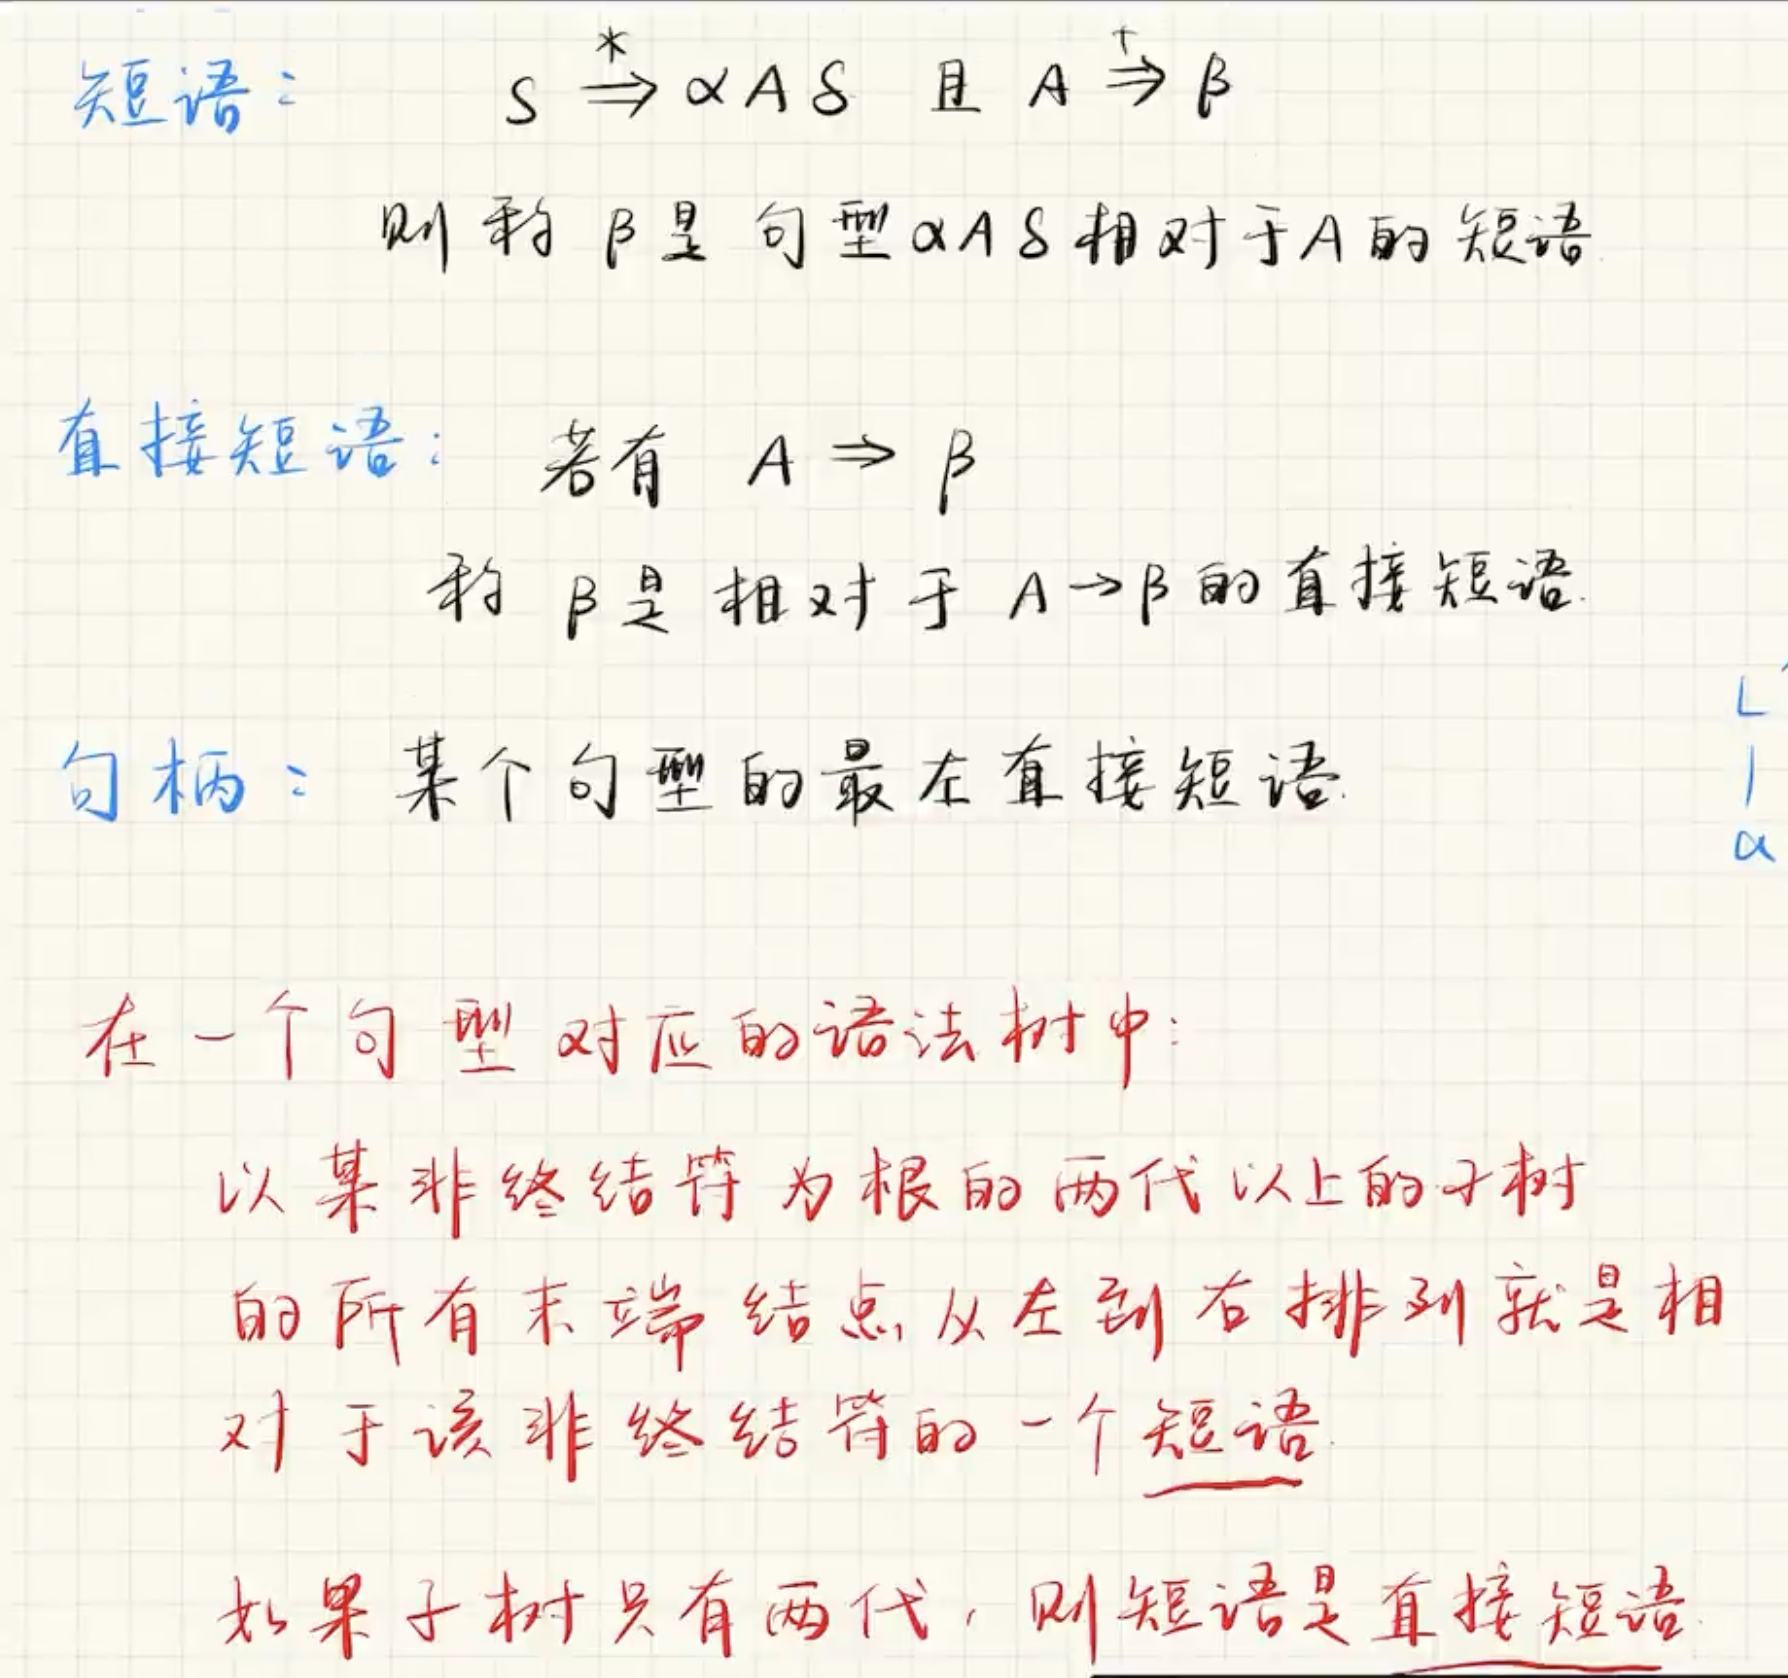 短语: S ⇒* αAδ 且 A ⇒+ β
则称 β是 句型αAδ相对于A的短语.
直接短语: 若有 A ⇒ β
称 β是相对于 A→β的直接短语.
句柄: 某个句型的最左直接短语.
L
|
a
在一个句型对应的语法树中:
以某非终结符为根的两代以上的子树
的所有末端结点从左到右排列就是相
对于该非终结符的一个短语.
如果子树只有两代, 则短语是直接短语.